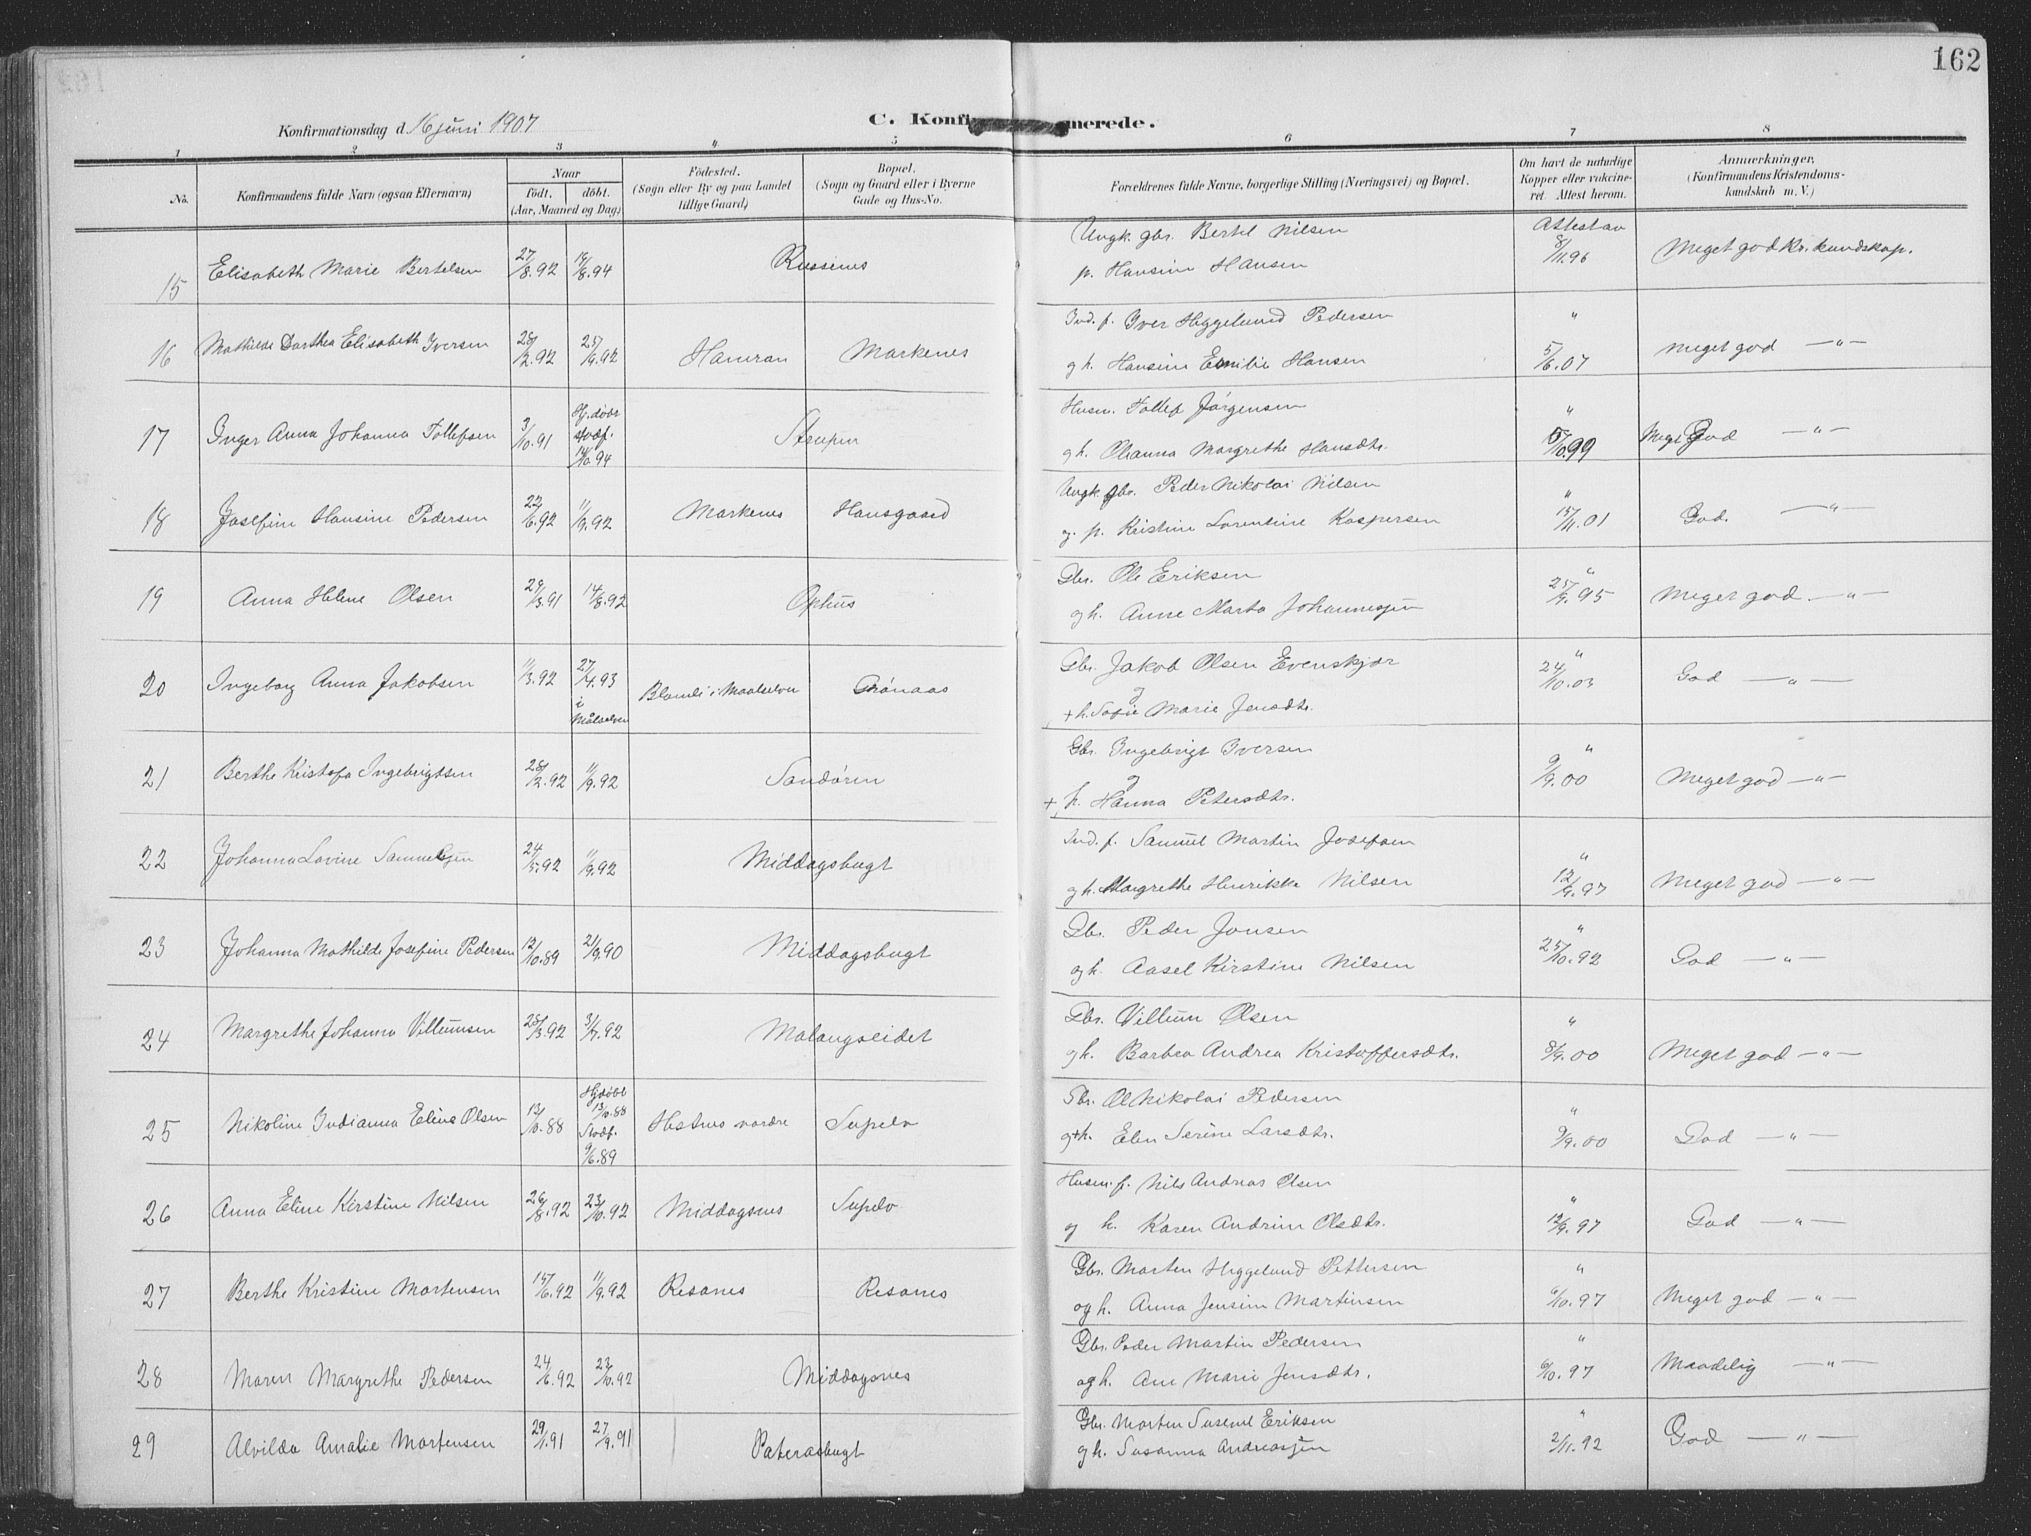 162
Konfirmationsdag d. 16 juni 1907
C. Konfirmerede.
1 2 3 4 5 6 7 8
No.
Konfirmandens fulde Navn (ogsaa Efternavn)
Naar
født. døbt.
(Aar, Maaned og Dag)
Fødested.
(Sogn eller By og paa Landet
tillige Gaard)
Bopæl.
(Sogn og Gaard eller i Byerne
Gade og Hus-No.
Forældrenes fulde Navne, borgerlige Stilling (Næringsvei) og Bopæl.
Om havt de naturlige
Kopper eller vakcine-
ret. Attest herom.
Anmærkninger.
(Konfirmandens Kristendoms-
kundskab m. V.)
15 Elisabeth Marie Bertelsen 27/8.92 /8.94 Russenes
Ungk. gbr. Bertel Nilsen
p. Hansine Hansen
Attest av 8/11.96 Meget god Kr. kundskap.
16 Mathilde Dorthea Elisabeth Iversen 28/2.92 25/9.92 Hamran Markenes
Ind. f. Iver Heggelund Pedersen
og h. Hansine Emilie Hansen
" 5/6.07 Meget god —"—
17 Inger Anna Johanna Tollefsen 3/10.91 Hj.døbt stadf. 14/10.94 Strupen
Husm. Tollef Jørgensen
og h. Oleanna Margrethe Hansdtr.
" /10.99 Meget God —"—
18 Josefine Hansine Pedersen 22/6.92 11/9.92 Markenes Hansgaard
Ungk. gbr. Peder Nikolai Nilsen
og p. Kristine Lorentine Kaspersen
" 15/11.01 God. —"—
19 Anna Helene Olsen 29/3.91 14/8.92 Ophus
Gbr. Ole Eriksen
og h. Anne Marta Johannesen
" 25/9.95 Meget god. —"—
20 Ingeborg Anna Jakobsen 11/3.92 27/4.93 i Målselven Blomli i Maalselven Grönaas
Gbr. Jakob Olsen Evenskjær
og
+ h. Sofie Marie Jensdtr.
" 24/10.03 God —"—
21 Berthe Kristofa Ingebrigtsen 28/2.92 11/9.92 Sandøren
Gbr. Ingebrigt Iversen
og
+ h. Hanna Petersdtr.
" 9/9.00 Meget god —"—
22 Johanna Lovise Samuelsen 24/5.92 11/9.92 Middagsbugt
Ind. f. Samuel Martin Josefsen
og h. Margrethe Henrikke Nilsen
" 12/9.97 Meget god —"—
23 Johanna Mathilde Josefine Pedersen 12/10.89 21/9.90 Middagsbugt
Gbr. Peder Jonsen
og h. Aasel Kirstine Nilsen
" 25/10.92 God —"—
24 Margrethe Johanna Villumsen 25/3.92 3/7.92 Malangseidet
Gbr. Villum Olsen
og h. Barbra Andrea Kristoffersdtr.
" 8/9.00 Meget god —"—
25 Nikoline Indianna Elene Olsen 13/10.88 Hjdøbt 13/10.88 Stadf. 9/6.89 Hestnes nordre Supelv
Gbr. Ol Nikolai Pedersen
og + h. Elen Serine Larsdtr.
" 9/9.00 God —"—
26 Anna Eline Kirstine Nilsen 26/8.92 23/10.92 Middagsnes Supelv
Husm. f. Nils Andreas Olsen
og h. Karen Andrine Olsdtr.
" 12/9.97 God —"—
27 Berthe Kristine Mortensen 15/6.92 11/9.92 Resanes Resanes
Gbr. Morten Heggelund Pettersen
og h. Anna Jensine Martinsen
" 6/10.97 Meget god —"—
28 Maren Margrethe Pedersen 24/6.92 23/10.92 Middagsnes
Gbr. Peder Martin Pedersen
og h. Ane Marie Jensdtr.
" 6/10.97 Maadelig —"—
29 Alvilda Amalie Mortensen 29/1.91 27/9.91 Paterasbugt
Gbr. Morten Eriksen
og h. Susanna Andreassen
" 2/11.92 God —"—